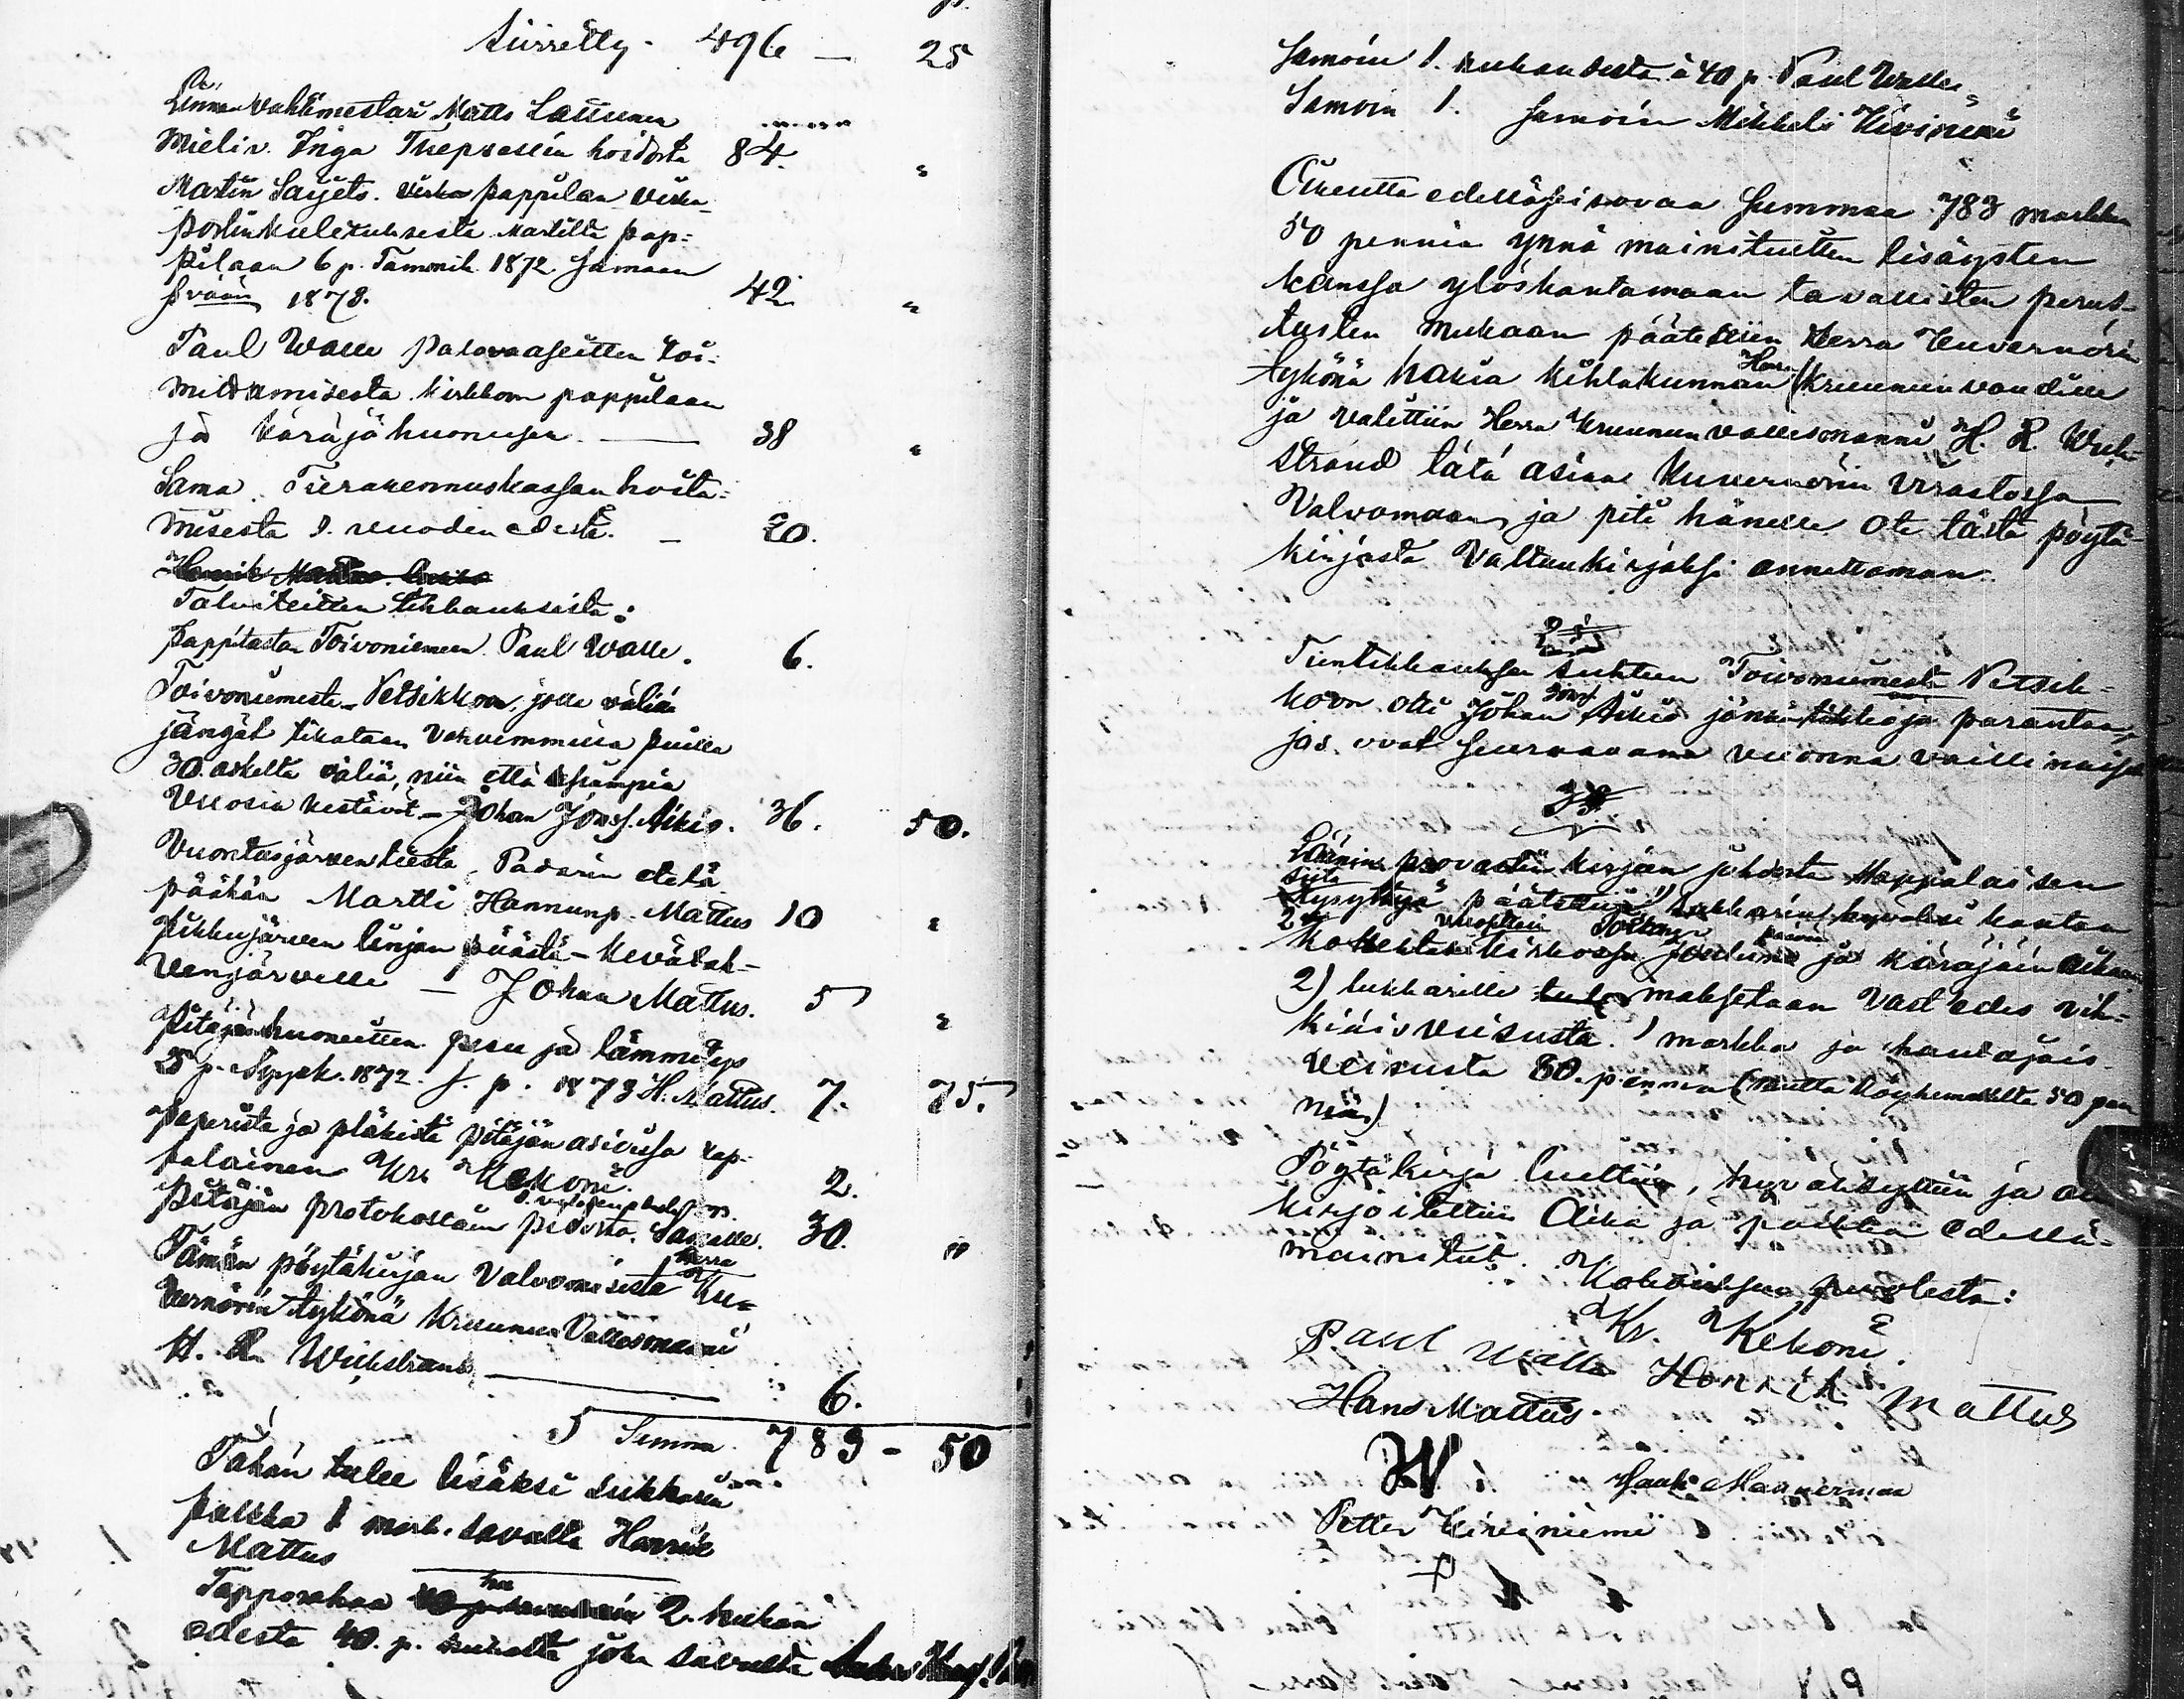 Siirretty - 496 — 25
Linnan Vahtimestari Matts Lattunen
Mieliv. Inga Thepsasein hoidosta 84. "
Martin Saijets. pappilan virka-
postin kuletuksesta Martilta pap-
pilaan 6 p. Tammik. 1872 samaan
p vään 1873. 42 "
Paul Walle palovaaseitten toi-
mittamisesta kirkkoon pappilaan
ja käräjähuoneisen — 38 "
Sama. Tierakennuskassan hoita-
misesta 1. vuoden edestä. — 20.
Talviteitten tikkauksista:
pappilasta Toivoniemeen Paul Walle. 6.
Toivoniemestä - Petsikkoon, joka väliä
jängät tikataan vahvemmilla puilla
30. askelta väliä, niin että
Vuosia kestävät — Johan Jons. Aikio. 36. 50.
Vuontasjärven tiestä, Padarin etelä
päähän Martti Hannunp. Mattus 10 "
Pikkujärven linjan päästä - Kevätah-
venjärvelle — Johan Mattus. 5 "
Pitäjänhuoneitten pesu ja lämmitys
25 p. Syysk. 1872. s. p. 1873 H. Mattus. 7. 75.
paperista ja pläkistä pitäjän asioissa kap-
palainen Kr. Kekoni. 2.
Pitäjän protokollain pidosta. Samalle. 30. "
Tämän pöytäkirjan Valvomisesta Herra Ku-
vernörin tykönä Kruunun Vallesmanni
H. R. Wickstrand — 6.
Summa 783 - 50
Tähän tulee lisäksi lukkarin
palkka 1 mark. savulta Henrik
Mattus
Tapporahaa 2. hukan
edestä 40. p. hukalta joka savulta
Samoin 1. hukan edestä à 40 p. Paul Walle,
Samoin 1. Samoin Mikkeli Kiviniemi
Oikeutta edelläseisovaa Summaa 783 markkaa
50 penniä ynnä mainituitten lisäysten
kanssa ylöskantamaan tavallisten perus-
tusten mukaan päätettiin Herra Kuvernörin
tykönä hakia kihlakunnan Herra Kruununvoudille
ja valittiin Herra Kruununvallesmanni H. R. Wick-
strand tätä asiaa Kuvernörin Virastossa
Valvomaan, ja piti hänelle Ote tästä pöytä-
kirjasta Valtuukirjaksi annettaman.
2 §
Tientikkauksen suhteen Toivoniemestä Petsik-
koon otti Johan Jons. Aikio jänkätikkoja parantaa,
jos ovat seuraavana vuonna vaillinaiset
3 §
Läänin provastin kirjan johdosta Kappalaisen
siitä kysyttyä päätettiin 1) lukkarin kapat kantaa
kolehtia kirkossa vuosittain Jouluna ja käräjäin aikana
2) lukkarille maksetaan Vast'edes vih-
kiäisveisusta 1 markka ja hautajais-
veisusta 80. penniä (mutta köyhemmiltä 50 pen
niä.)
Pöytäkirja luettiin, hyväksyttiin ja al
kirjoitettiin Aika ja paikka edellä-
mainitut. Kokouksen puolesta:
Kr. Kekoni.
Paul Walle Henrik Mattus
Hans Mattus.
W
Isak Mannermaa
Petter Kiviniemi